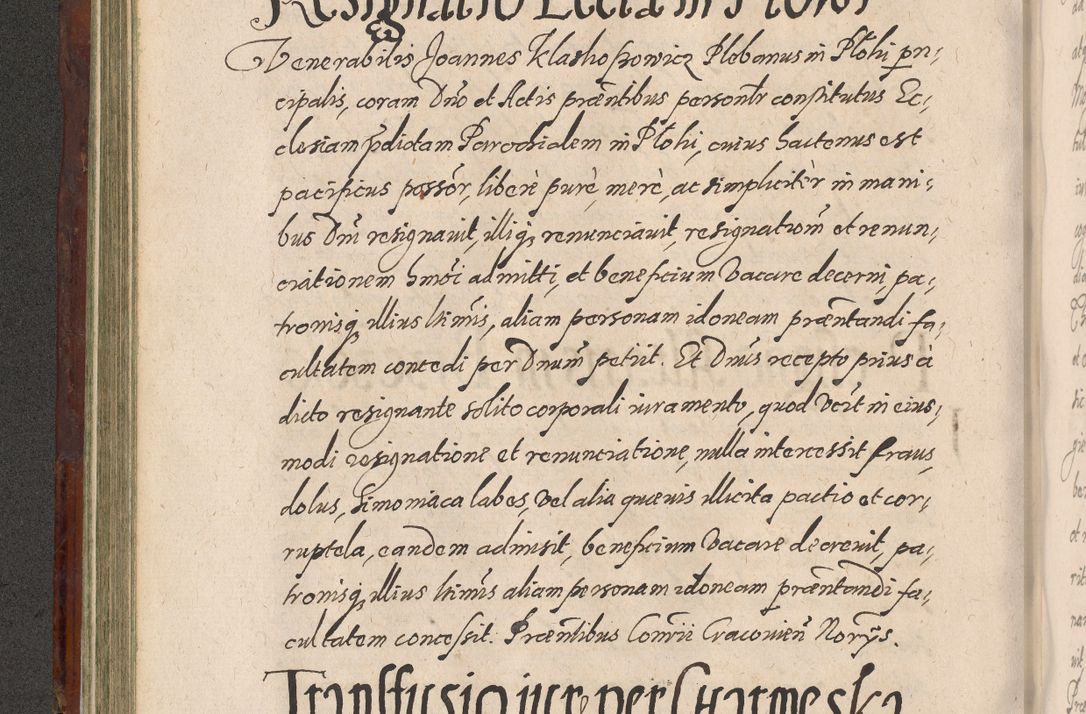 Resignatio Eccliae in Plohi
Venerabilis Joannes Klasho Plebanus in Plohi prin-
cipalis, coram Dno et Actis praentibus personltr constitutus Ec-
clesiam pdictam Parochialem in Plohi, cuius hactenus est
pacificus possor, liberè purè, merè, ac simplicitèr in mani-
bus Dni resignauit, illiq, renunciauit, resignationem et renun-
ciationem hmoi admitti, et beneficium vacare decerni, pa-
tronisq, illius ltimis, aliam personam idoneam praentandi fa-
cultatem concedi per Dnum petiit. Et Dnus recepto prius à
dicto resignante solito corporali iuramento, quod in eius-
modi resignatione et renunciatione, nulla intercessit fraus,
dolus, simoniaca labes, vel alia quaeuis illicita pactio et cor-
ruptela, eandem admisit, beneficium vacare decreuit, pa-
tronisq, illius ltimis aliam personam idoneam praentandi fa-
cultatem concessit. Praentibus Conrii Cracouien Norijs.
Transfusio iur per